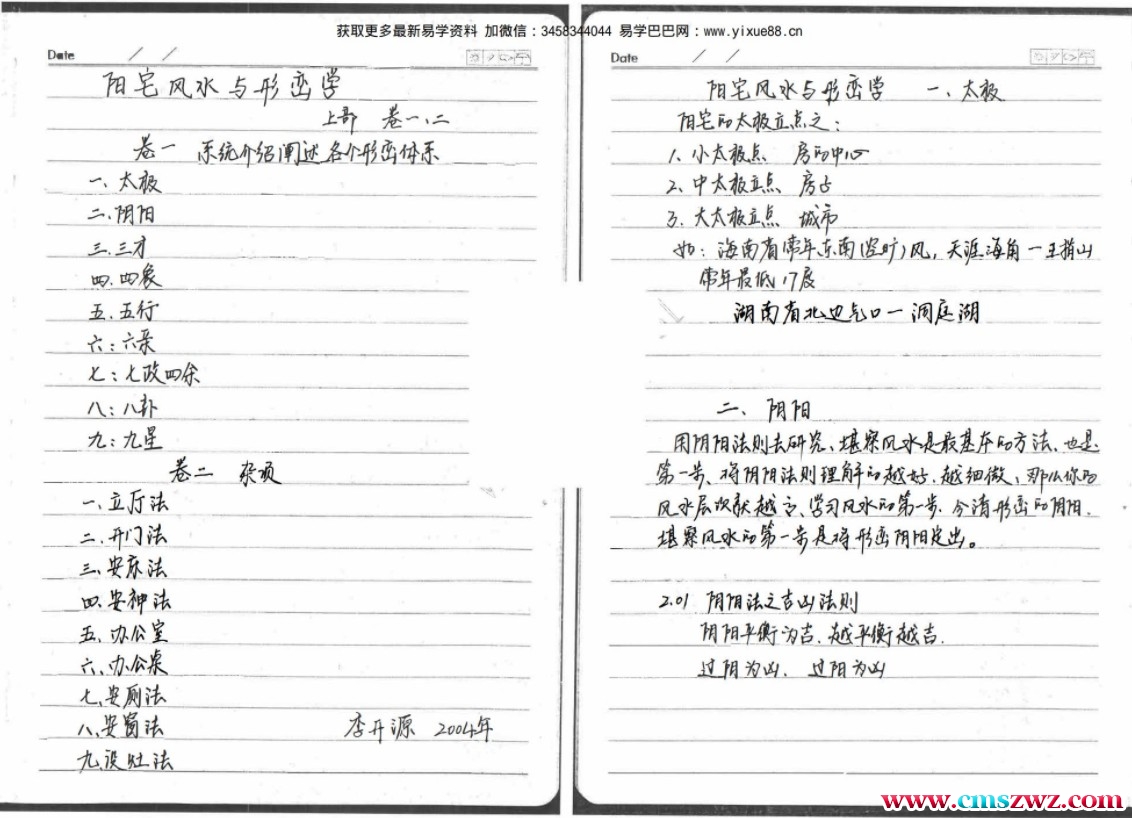 获取更多最新易学资料 加微信：3458344044 易学巴巴网：www.yixue88.cn
Date / /
阳宅风水与形峦学
上部 卷一、二
卷一 系统介绍阐述各个形峦体系
一、太极
二、阴阳
三、三才
四、四象
五、五行
六：六亲
七：七政四余
八：八卦
九：九星
卷二 杂项
一、立厅法
二、开门法
三、安床法
四、安神法
五、办公室
六、办公桌
七、安厕法
八、安窗法
李开源 2004年
九、设灶法
Date / /
阳宅风水与形峦学 一、太极
阳宅的太极立点之：
1、小太极点 房的中心
2、中太极立点 房占
3、大太极立点 城市
如：海南省常年东南(空旷)风，天涯海角一王指山
常年最低17度
湖南省北边气口一洞庭湖
二、阴阳
用阴阳法则去研究、堪察风水是最基本的方法、也是
第一步、将阴阳法则理解的越好、越细微、那么你的
风水层次就越高、学习风水的第一步、分清形峦的阴阳、
堪察风水的第一步是将形峦阴阳定出。
2.01 阴阳法之吉凶法则
阴阳平衡为吉、越平衡越吉.
过阴为凶、过阳为凶
www.cmszwz.com